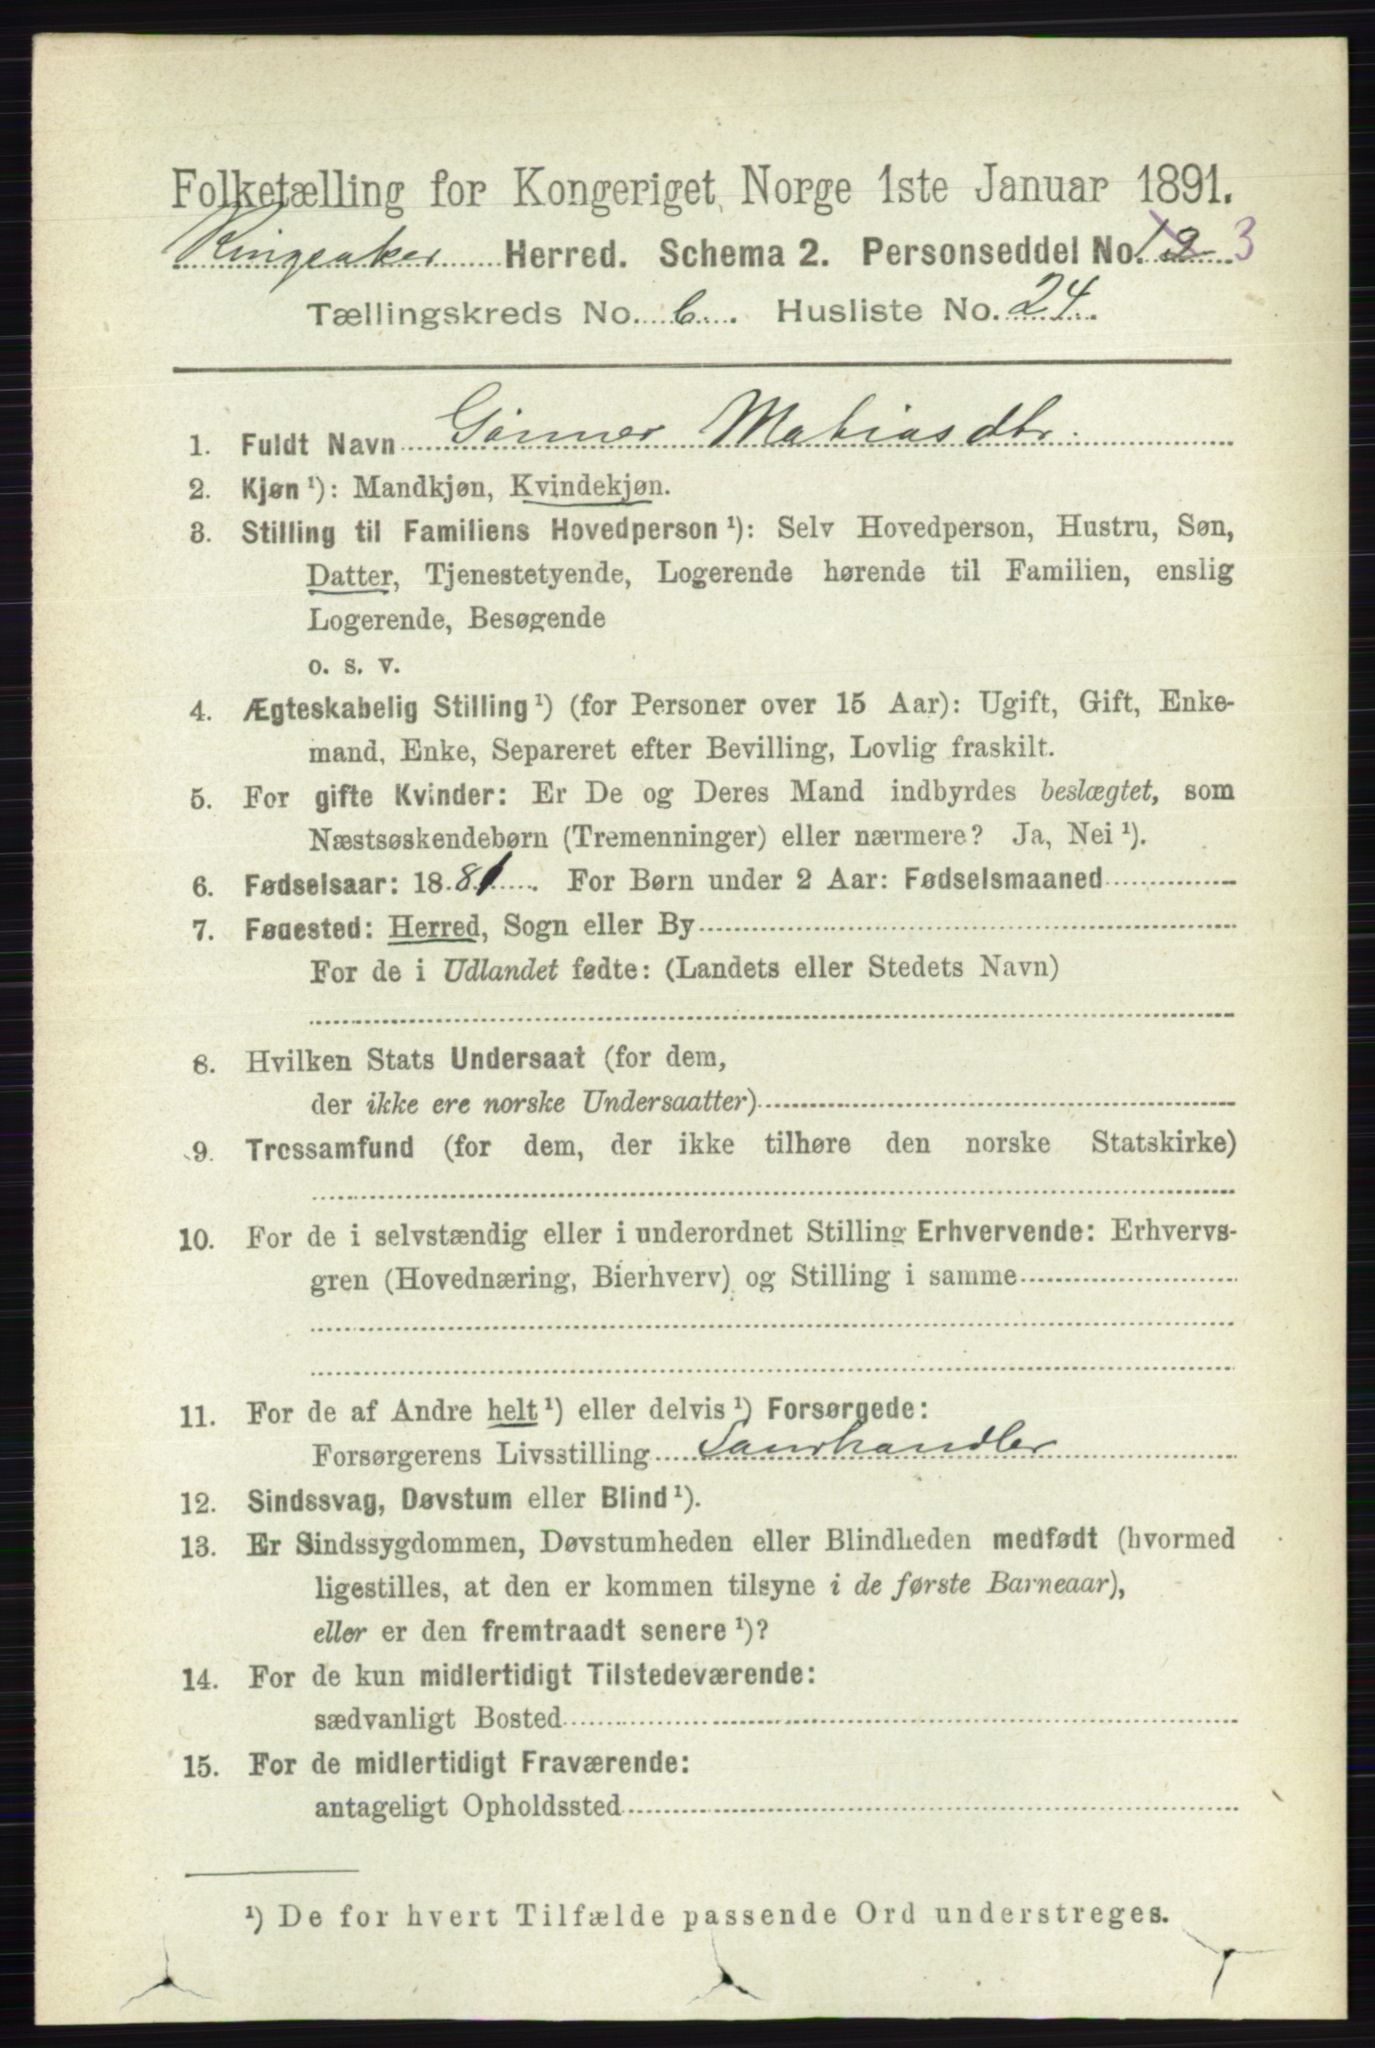 Folketælling for Kongeriget Norge 1ste Januar 1891.
Ringsaker Herred. Schema 2. Personseddel No. 12 3
Tællingskreds No. 6. Husliste No. 24.
1. Fuldt Navn Gunner Matias dtr.
2. Kjøn ¹): Mandkjøn, Kvindekjøn.
3. Stilling til Familiens Hovedperson ¹): Selv Hovedperson, Hustru, Søn,
Datter, Tjenestetyende, Logerende hørende til Familien, enslig
Logerende, Besøgende
o. s. v.
4. Ægteskabelig Stilling ¹) (for Personer over 15 Aar): Ugift, Gift, Enke-
mand, Enke, Separeret efter Bevilling, Lovlig fraskilt.
5. For gifte Kvinder: Er De og Deres Mand indbyrdes beslægtet, som
Næstsøskendebørn (Tremenninger) eller nærmere? Ja, Nei ¹).
6. Fødselsaar: 1881. For Børn under 2 Aar: Fødselsmaaned
7. Fødested: Herred, Sogn eller By
For de i Udlandet fødte: (Landets eller Stedets Navn)
8. Hvilken Stats Undersaat (for dem,
der ikke ere norske Undersaatter)
9. Trossamfund (for dem, der ikke tilhøre den norske Statskirke)
10. For de i selvstændig eller i underordnet Stilling Erhvervende: Erhvervs-
gren (Hovednæring, Bierhverv) og Stilling i samme
11. For de af Andre helt ¹) eller delvis ¹) Forsørgede:
Forsørgerens Livsstilling Landhandler
12. Sindssvag, Døvstum eller Blind ¹).
13. Er Sindssygdommen, Døvstumheden eller Blindheden medfødt (hvormed
ligestilles, at den er kommen tilsyne i de første Barneaar),
eller er den fremtraadt senere ¹)?
14. For de kun midlertidigt Tilstedeværende:
sædvanligt Bosted
15. For de midlertidigt Fraværende:
antageligt Opholdssted
¹) De for hvert Tilfælde passende Ord understreges.